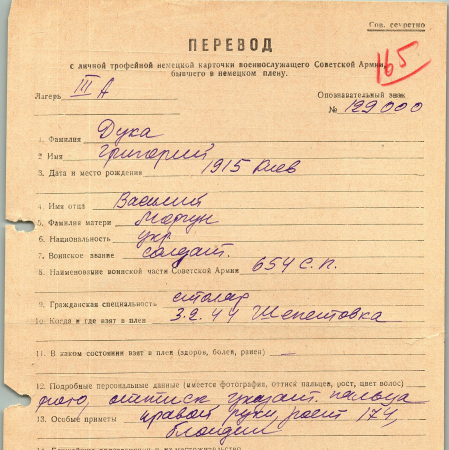 Сов. секретно
ПЕРЕВОД
165
с личной трофейной немецкой карточки военнослужащего Советской Армии,
бывшего в немецком плену.
Лагерь III А
Опознавательный знак
№ 129000
1. Фамилия Дука
2. Имя Григорий
3. Дата и место рождения 1915 Киев
4. Имя отца Василий
5. Фамилия матери Моргун
6. Национальность укр
7. Воинское звание солдат.
8. Наименование воинской части Советской Армии 654 с.п.
9. Гражданская специальность столяр
10. Когда и где взят в плен 3.2.44 Шепетовка
11. В каком состоянии взят в плен (здоров, болен, ранен) —
12. Подробные персональные данные (имеется фотография, оттиск пальцев, рост, цвет волос)
фото, оттиск указат. пальца
13. Особые приметы правой руки, рост 174,
блондин